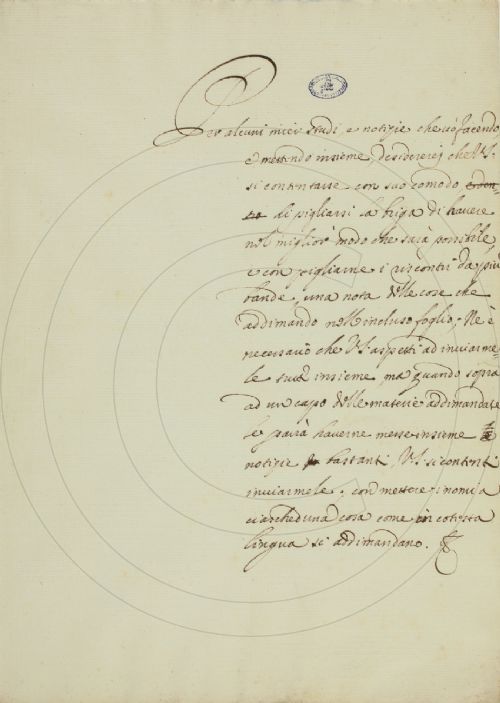 Per alcuni miei studi, e notizie che uò facendo
e mettendo insieme, desidererej che V.S.
si contentasse con suo comodo
di pigliarsi la briga di havere
nel miglior modo che sarà possibile
e con pigliarne i riscontri da più
bande, una nota delle cose che
addimando nell'incluso foglio; Nè è
necessario che V.S. aspetti ad inviarme-
le tutte insieme, ma quando sopra
ad un capo delle materie addimandate
le parrà haverne messe insieme
notizie bastanti, V.S. si contenti
inviarmele, con mettere i nomi a
ciascheduna cosa come in cotesta
lingua si addimandano.